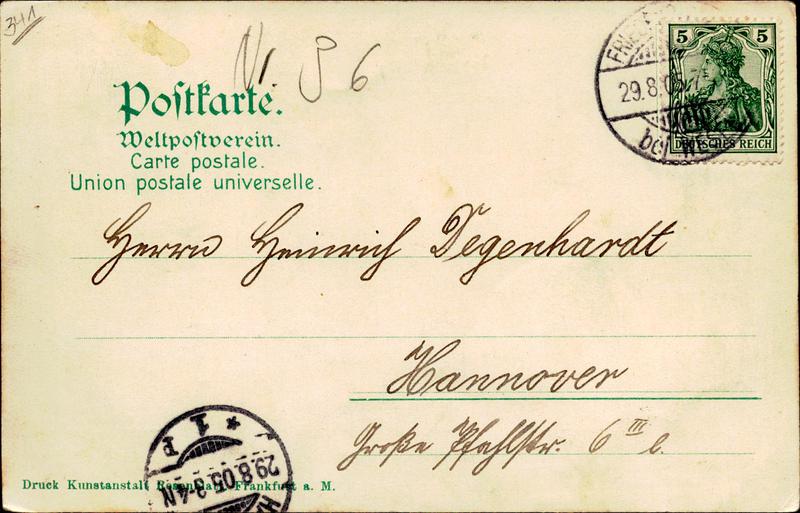 341
Nr 96
Postkarte.
Weltpostverein.
Carte postale.
Union postale universelle.
5 5
DEUTSCHES REICH
29.8.05.
bei
Herrn Heinrich Degenhardt
Hannover
Große Pfahlstr. 6 III l.
* 1 P
29.8.05. 3-4N
Druck Kunstanstalt Frankfurt a. M.